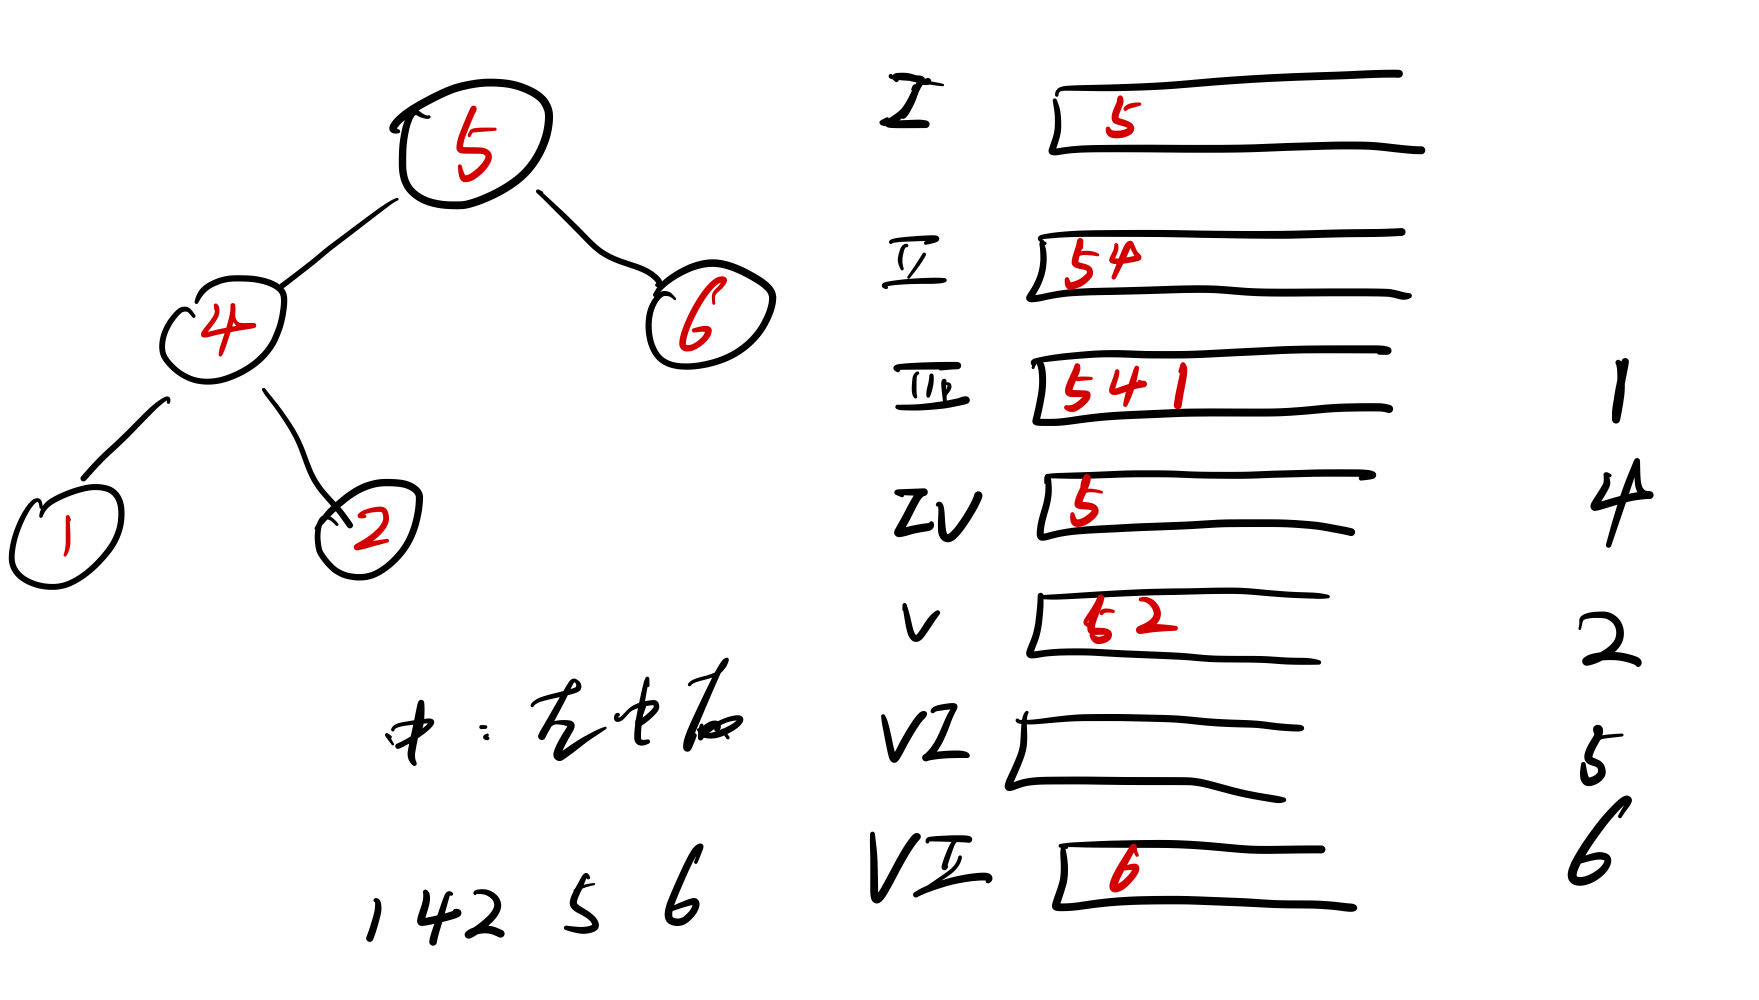 5
4 6
1 2
中：左中右
1 4 2 5 6
I 5
II 5 4
III 5 4 1
IV 5
V 5 2
VI
VII 6
1
4
2
5
6